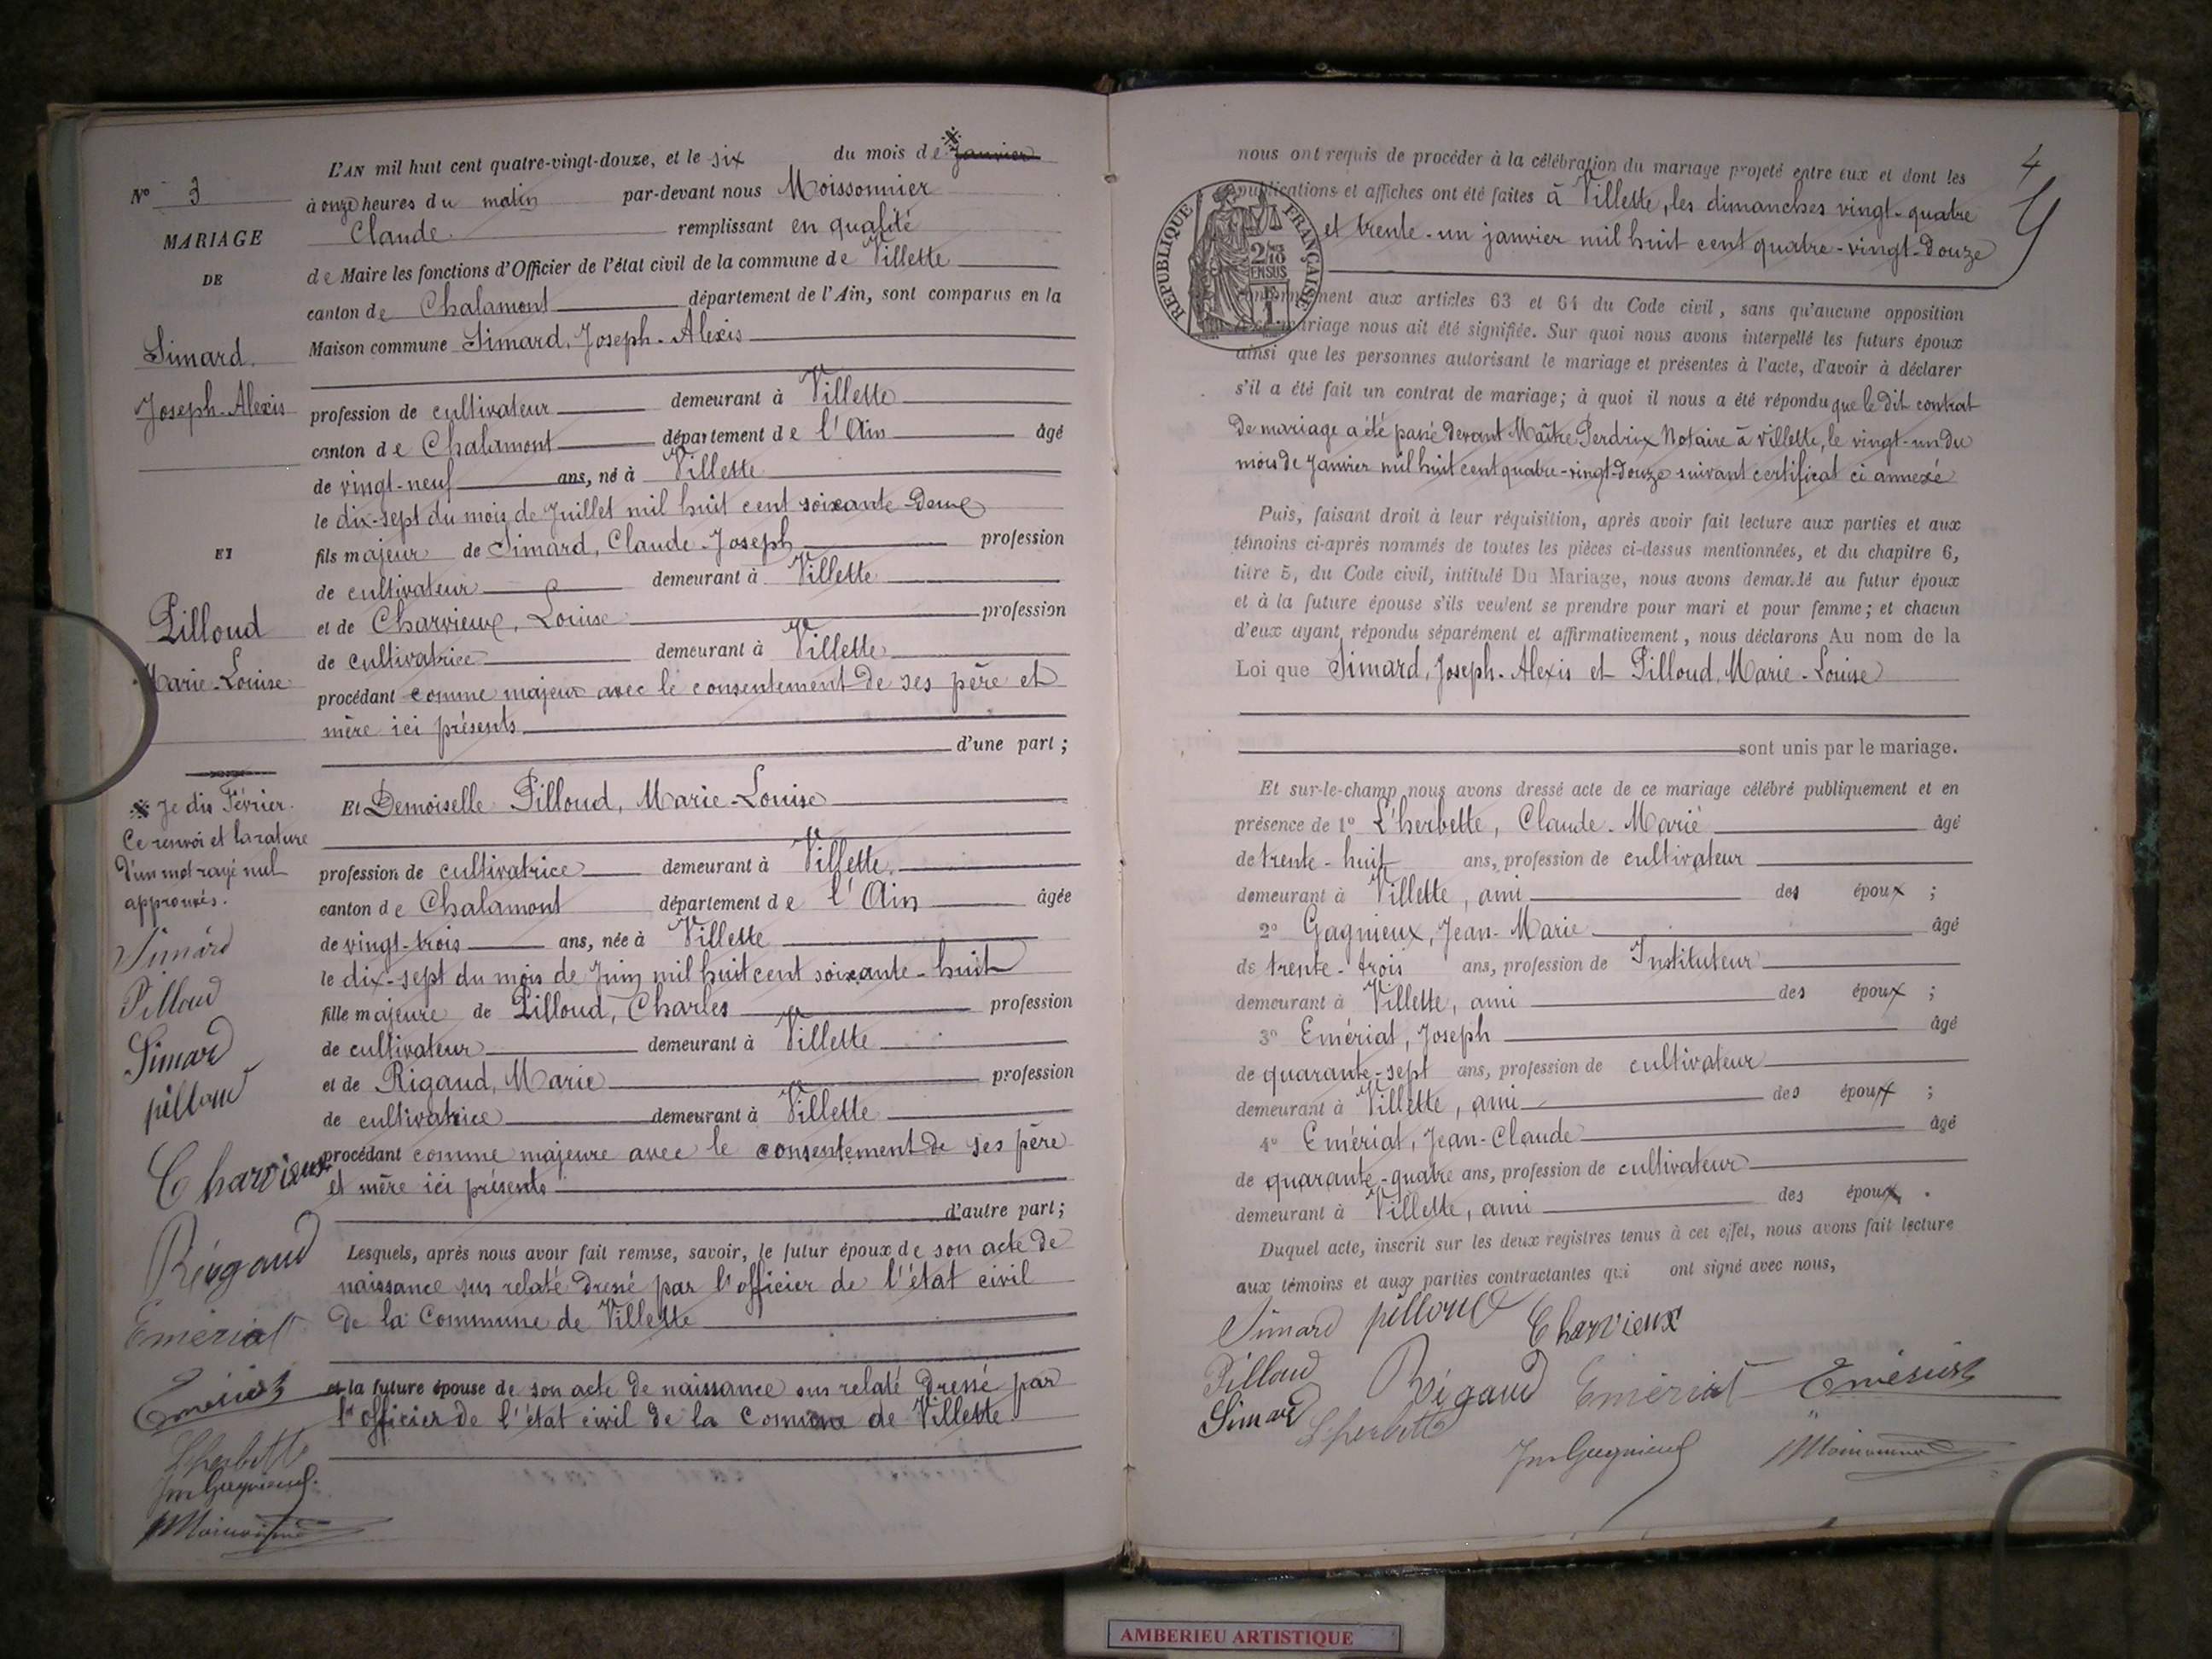 L'AN mil huit cent quatre-vingt-douze, et le six du mois de Janvier
N° 3
à onze heures du matin par-devant nous Moissonnier
Claude remplissant en qualité
MARIAGE
DE
de Maire les fonctions d'Officier de l'état civil de la commune de Villette
canton de Chalamont département de l'Ain, sont comparus en la
Maison commune Simard, Joseph-Alexis
Simard
Joseph-Alexis
profession de cultivateur demeurant à Villette
canton de Chalamont département de l'Ain âgé
de vingt-neuf ans, né à Villette
le dix-sept du mois de Juillet mil huit cent soixante-deux
ET
fils majeur de Simard, Claude-Joseph profession
de cultivateur demeurant à Villette
et de Charvieux, Louise profession
Pilloud
Marie-Louise
de cultivatrice demeurant à Villette
procédant comme majeur avec le consentement de ses père et
mère ici présents
d'une part;
Et Demoiselle Pilloud, Marie-Louise
profession de cultivatrice demeurant à Villette
canton de Chalamont département de l'Ain âgée
de vingt-trois ans, née à Villette
le dix-sept du mois de Juin mil huit cent soixante-huit
fille majeure de Pilloud, Charles profession
de cultivateur demeurant à Villette
et de Rigaud, Marie profession
de cultivatrice demeurant à Villette
procédant comme majeure avec le consentement de ses père
et mère ici présents
d'autre part;
Lesquels, après nous avoir fait remise, savoir, le futur époux de son acte de
naissance sus relaté dressé par l'officier de l'état civil
de la Commune de Villette
et la future épouse de son acte de naissance sus relaté dressé par
l'officier de l'état civil de la Commune de Villette
Je dis Février.
Ce renvoi et la rature
d'un mot rayé nul
approuvés.
Simard
Pilloud
Simard
pilloud
Charvieux
Rigaud
Emériat
Emériat
Lherbette
Jm Gagnieux
Moissonnier
4
nous ont requis de procéder à la célébration du mariage projeté entre eux et dont les
publications et affiches ont été faites à Villette, les dimanches vingt-quatre
et trente-un janvier mil huit cent quatre-vingt-douze
RÉPUBLIQUE FRANÇAISE
conformément aux articles 63 et 64 du Code civil, sans qu'aucune opposition
mariage nous ait été signifiée. Sur quoi nous avons interpellé les futurs époux
ainsi que les personnes autorisant le mariage et présentes à l'acte, d'avoir à déclarer
s'il a été fait un contrat de mariage; à quoi il nous a été répondu que le dit contrat
de mariage a été passé devant Maître Perdrix Notaire à Villette, le vingt-un du
mois de Janvier mil huit cent quatre-vingt-douze suivant certificat ci annexé
Puis, faisant droit à leur réquisition, après avoir fait lecture aux parties et aux
témoins ci-après nommés de toutes les pièces ci-dessus mentionnées, et du chapitre 6,
titre 5, du Code civil, intitulé Du Mariage, nous avons demandé au futur époux
et à la future épouse s'ils veulent se prendre pour mari et pour femme; et chacun
d'eux ayant répondu séparément et affirmativement, nous déclarons Au nom de la
Loi que Simard, Joseph-Alexis et Pilloud, Marie-Louise
sont unis par le mariage.
Et sur-le-champ nous avons dressé acte de ce mariage célébré publiquement et en
présence de 1° L'herbette, Claude-Marie âgé
de trente-huit ans, profession de cultivateur
demeurant à Villette, ami des époux ;
2° Gagnieux, Jean-Marie âgé
de trente-trois ans, profession de Instituteur
demeurant à Villette, ami des époux ;
3° Emériat, Joseph âgé
de quarante-sept ans, profession de cultivateur
demeurant à Villette, ami des époux ;
4° Emériat, Jean-Claude âgé
de quarante-quatre ans, profession de cultivateur
demeurant à Villette, ami des époux .
Duquel acte, inscrit sur les deux registres tenus à cet effet, nous avons fait lecture
aux témoins et aux parties contractantes qui ont signé avec nous,
Simard pilloud Charvieux
Pilloud Rigaud Emériat Emériat
Simard Lherbette
Jm Gagnieux Moissonnier
AMBERIEU ARTISTIQUE